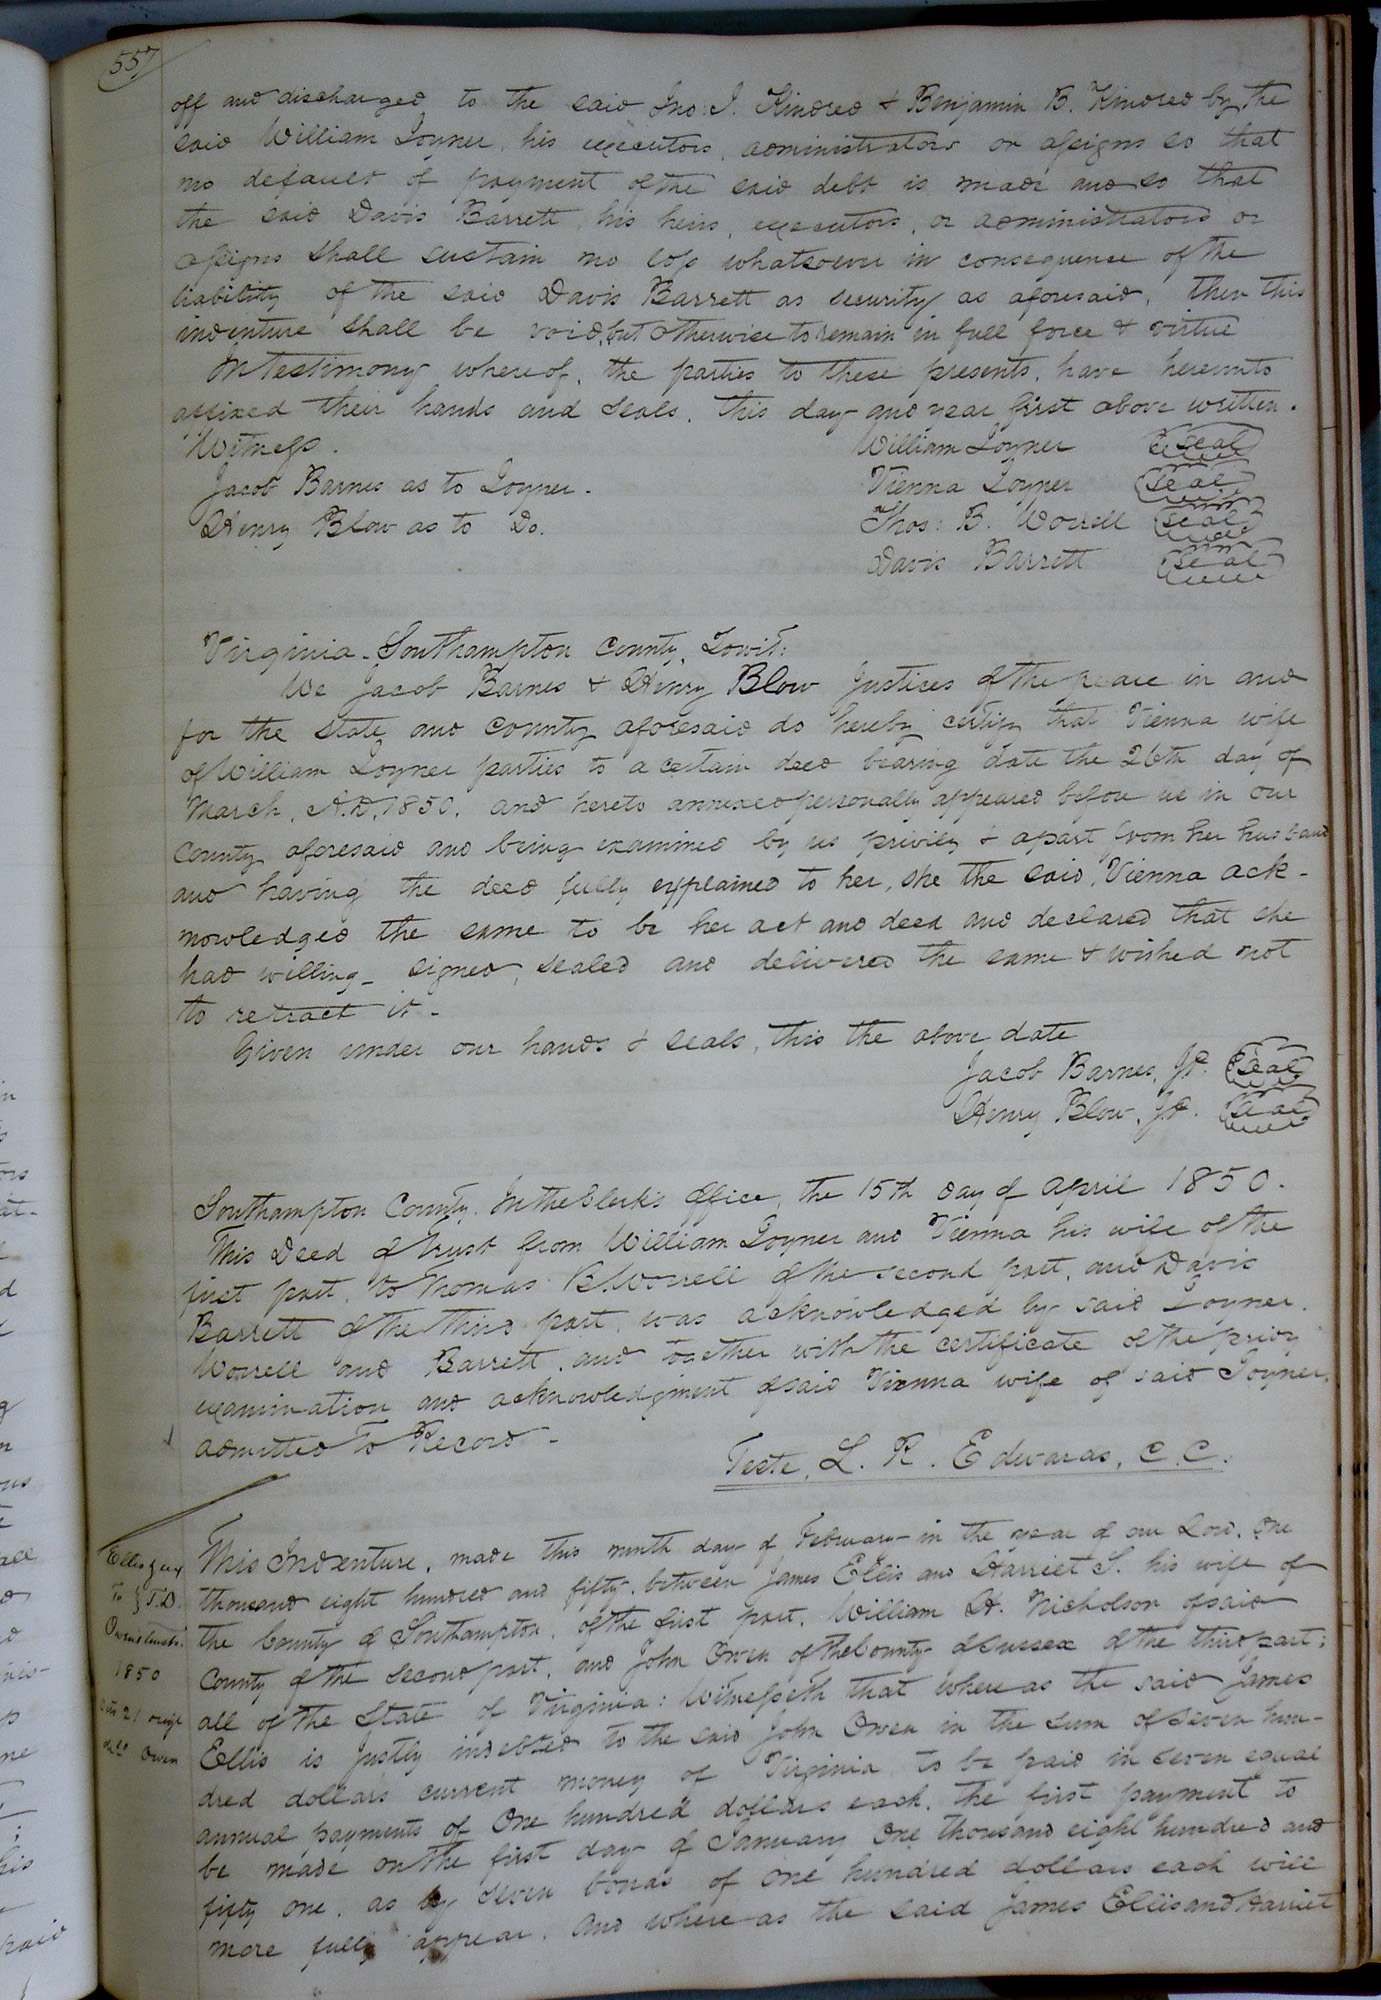 557
off and discharged to the said Jno: J. Kindred & Benjamin B. Kindred by the
said William Joyner, his executors, administrators or assigns so that
no default of payment of the said debt is made and so that
the said Davis Barrett, his heirs, executors, or administrators or
assigns shall sustain no loss whatsoever in consequence of the
liability of the said Davis Barrett as security as aforesaid, then this
indenture shall be void, but otherwise to remain in full force & virtue
In Testimony whereof, the parties to these presents, have hereunto
affixed their hands and seals, this day and year first above written.
Witness. William Joyner Seal
Jacob Barnes as to Joyner. Vienna Joyner Seal
Henry Blow as to Do. Thos: B. Worrell Seal
Davis Barrett Seal
Virginia - Southampton County, Towit:
We Jacob Barnes & Henry Blow Justices of the peace in and
for the state and county aforesaid do hereby certify that Vienna wife
of William Joyner parties to a certain deed bearing date the 26th day of
March, A.D. 1850, and hereto annexed personally appeared before us in our
County aforesaid and being examined by us privily & apart from her husband
and having the deed fully explained to her, she the said, Vienna ack-
nowledged the same to be her act and deed and declared that she
had willing- signed, sealed and delivered the same & wished not
to retract it -
Given under our hands & seals, this the above date
Jacob Barnes, J.P. Seal
Henry Blow, J.P. Seal
Southampton County. In the Clerk's Office, the 15th day of April 1850.
This Deed of trust from William Joyner and Vienna his wife of the
first part, to Thomas B. Worrell of the second part, and Davis
Barrett of the third part, was acknowledged by said Joyner.
Worrell and Barrett, and together with the certificate of the privy
examination and acknowledgment of said Vienna wife of said Joyner,
admitted To Record -
Teste, L. R. Edwards, C.C.
Ellis & ux
To } T.D.
1850
Owen
This Indenture, made this ninth day of February in the year of our Lord, One
thousand eight hundred and fifty, between James Ellis and Harriet S. his wife of
the County of Southampton, of the first part, William H. Nicholson of said
County of the second part, and John Owen of the County of Sussex of the third part;
all of the State of Virginia: Witnesseth that where as the said James
Ellis is justly indebted to the said John Owen in the sum of seven hun-
dred dollars current money of Virginia to be paid in seven equal
annual payments of One hundred dollars each, the first payment to
be made on the first day of January One thousand eight hundred and
fifty one, as by seven bonds of one hundred dollars each will
more fully appear, and where as the said James Ellis and Harriet